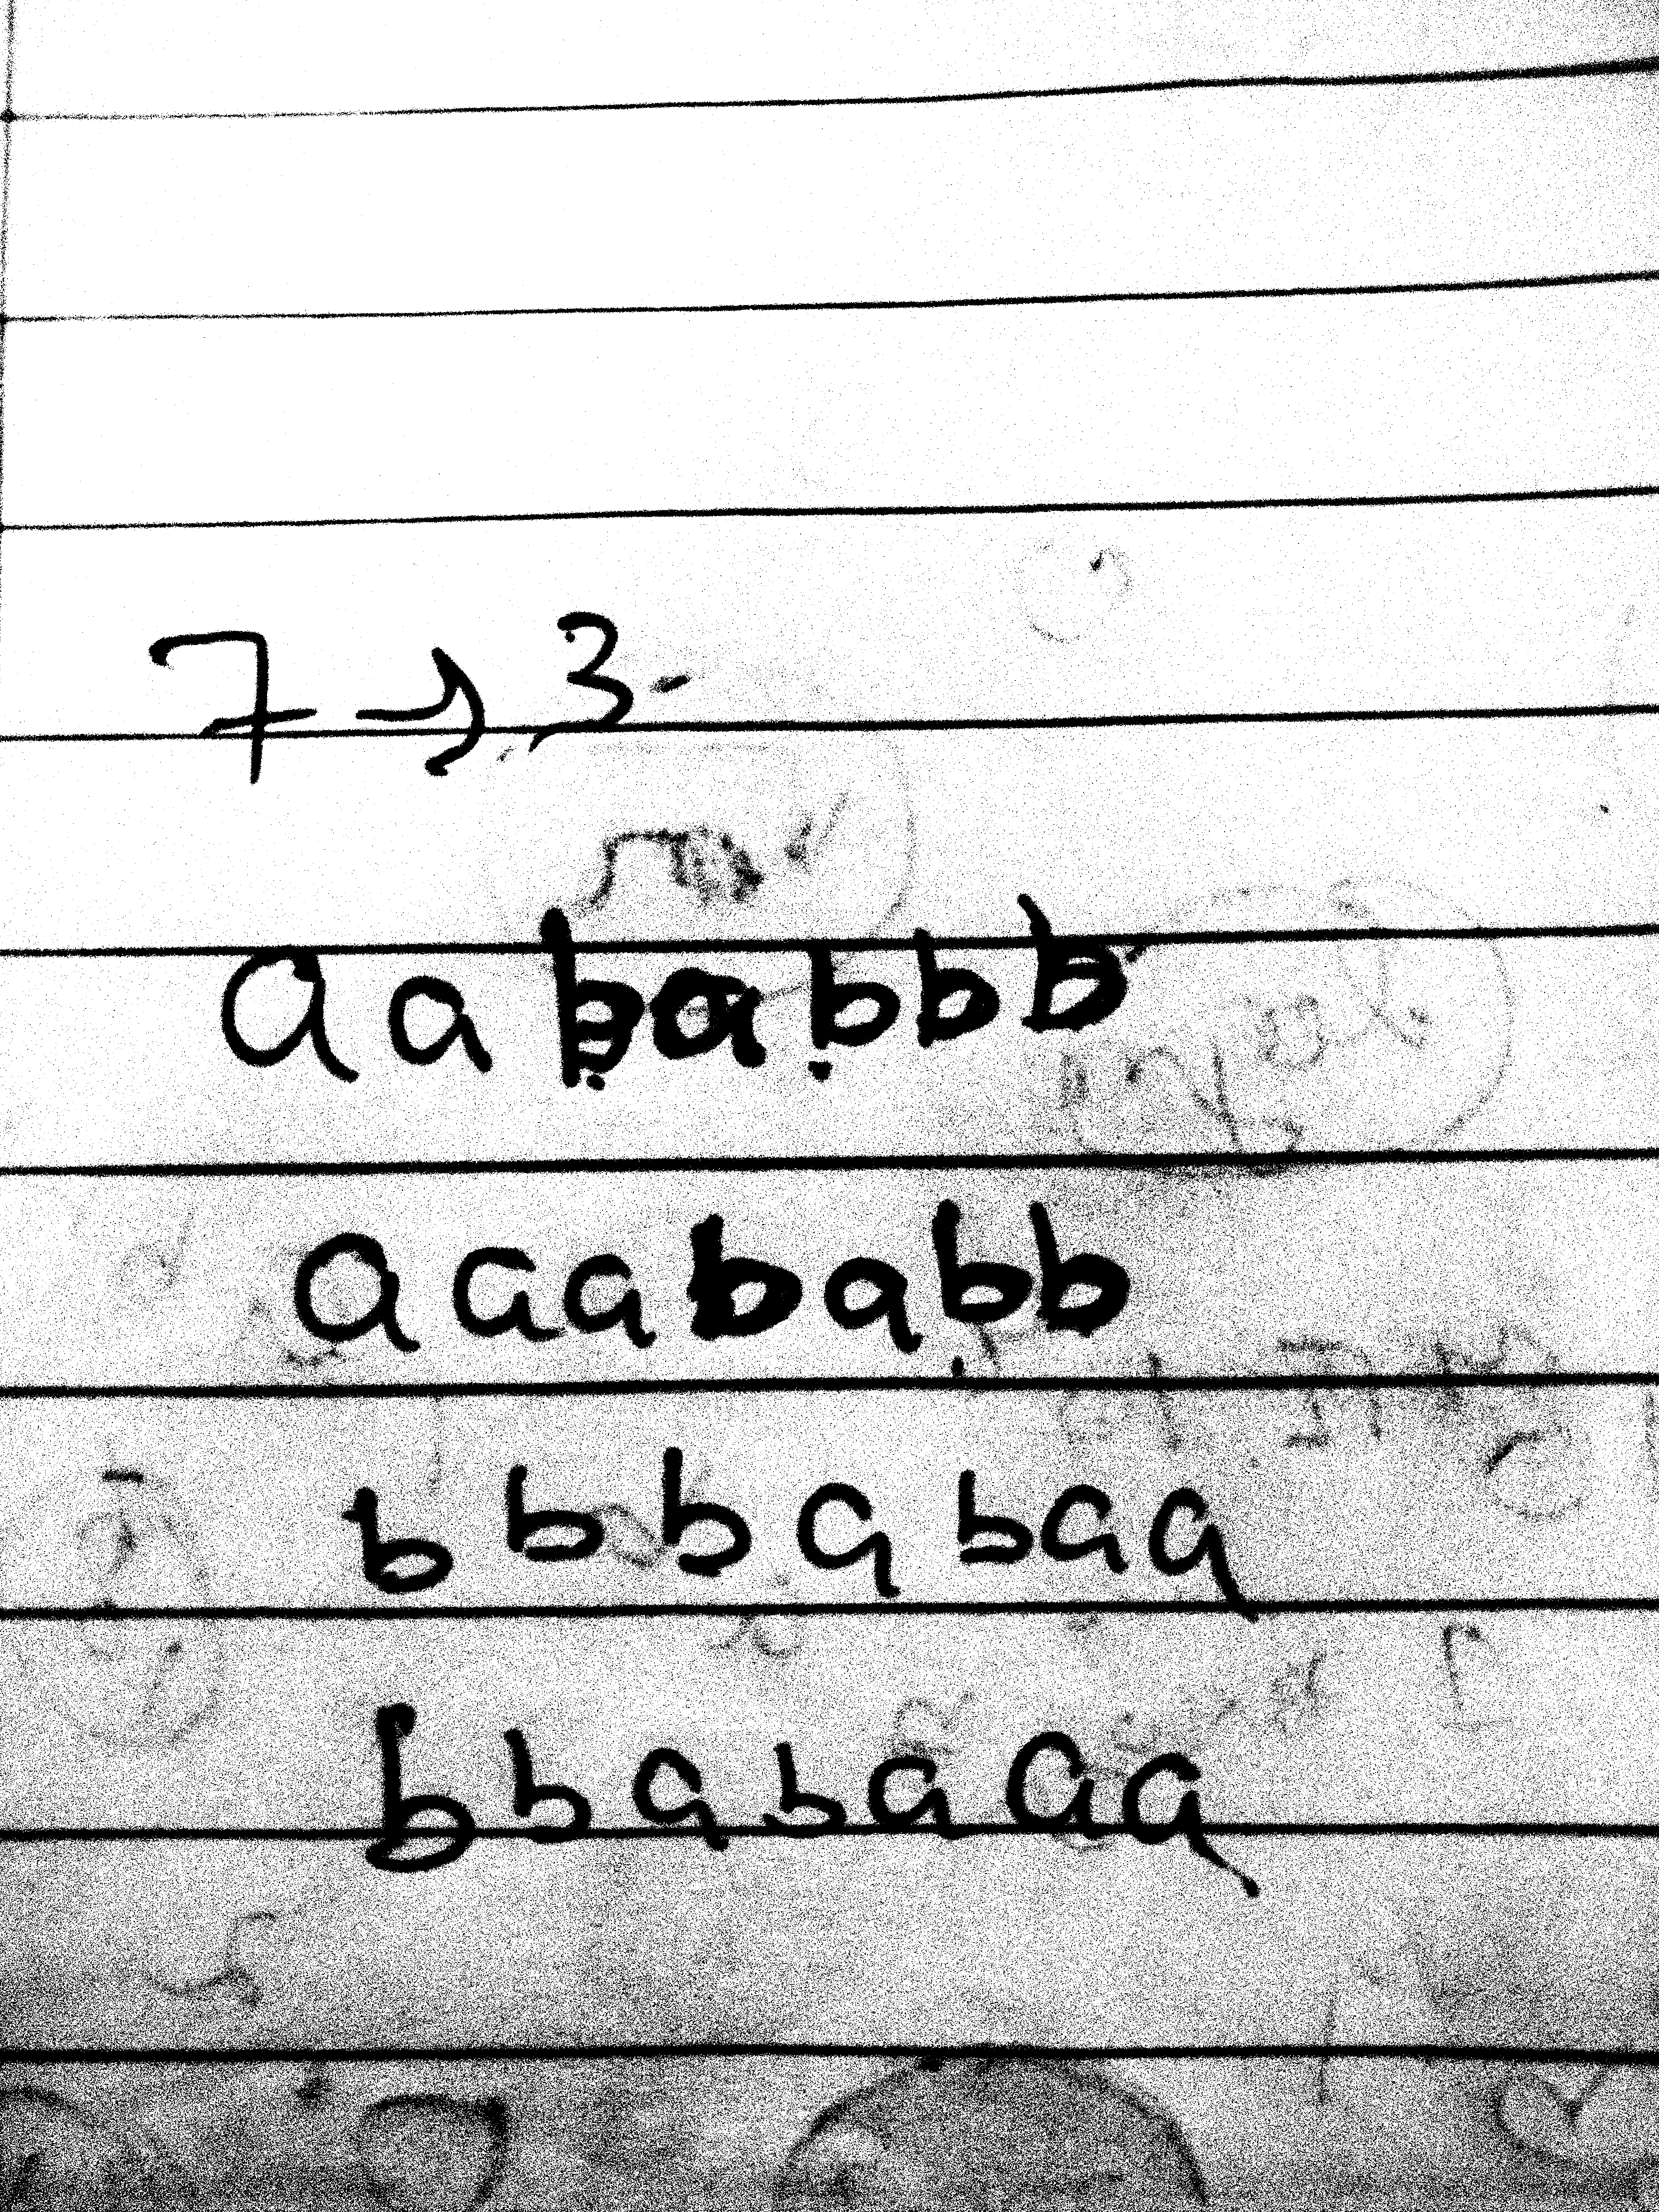 7 → 3
aababbb
aaababb
bbbabaa
bbabaaa